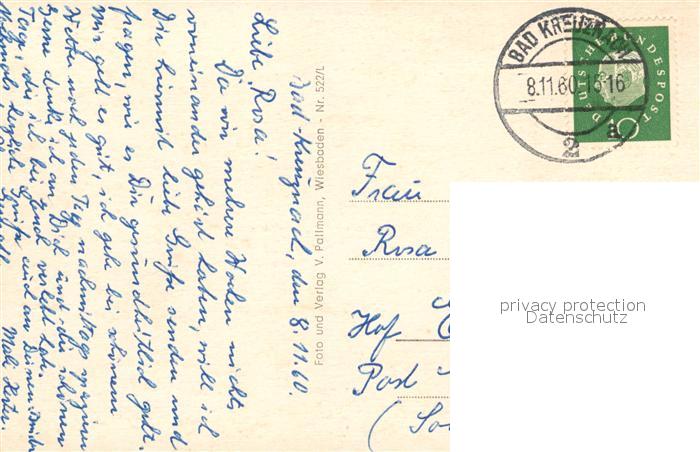 Bad-Kreuznach, den 8.11.60.
Liebe Rosa!
Da wir mehrere Wochen nichts
voneinander gehört haben, will ich
Dir hiermit liebe Grüße senden und
fragen, wie es Dir gesundheitlich geht.
Mir geht es gut, ich gehe bei schönem
Wetter noch jeden Tag nachmittags spazieren
Gerne denke ich an Dich und die schönen
Tage, die ich bei Euch verlebt habe.
Nochmals herzliche Grüße auch an Deinen Bruder
Foto und Verlag V. Pallmann, Wiesbaden - Nr. 522/L
BAD KREUZNACH
8.11.60.15-16
a
2
DEUTSCHE BUNDESPOST
10
Frau
Rosa
Hof
Post
(So
privacy protection
Datenschutz